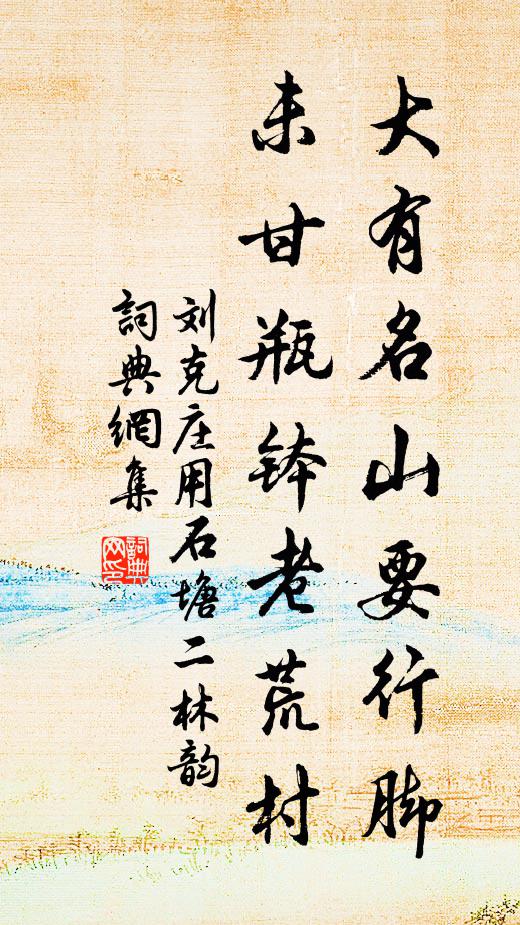 大有名山要行脚
未甘瓶钵老荒村
刘克庄用石塘二林韵
詞典網集
詞典网印